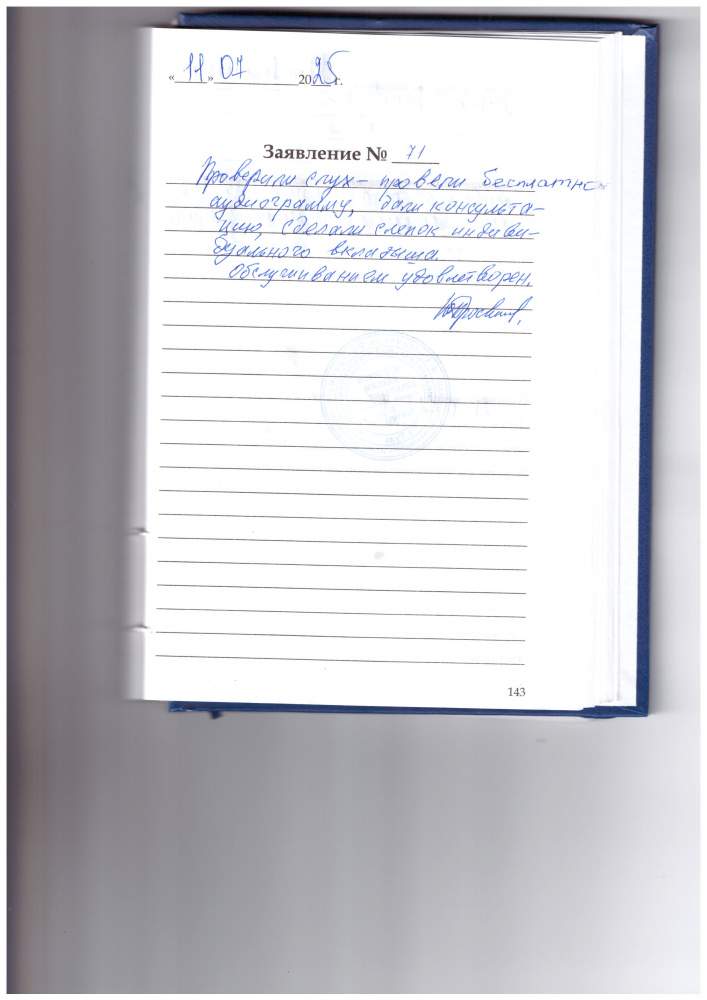 «11» 07 2025 г.
Заявление № 71
Проверили слух – провели бесплатно
аудиограмму, дали консульта-
цию, сделали слепок индиви-
дуального вкладыша.
Обслуживанием удовлетворен.
143